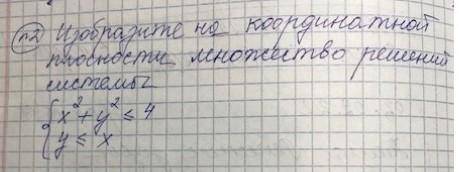 n2 Изобразите на координатной
плоскости множество решений
системы
{x² + y² ≤ 4
y ≤ x